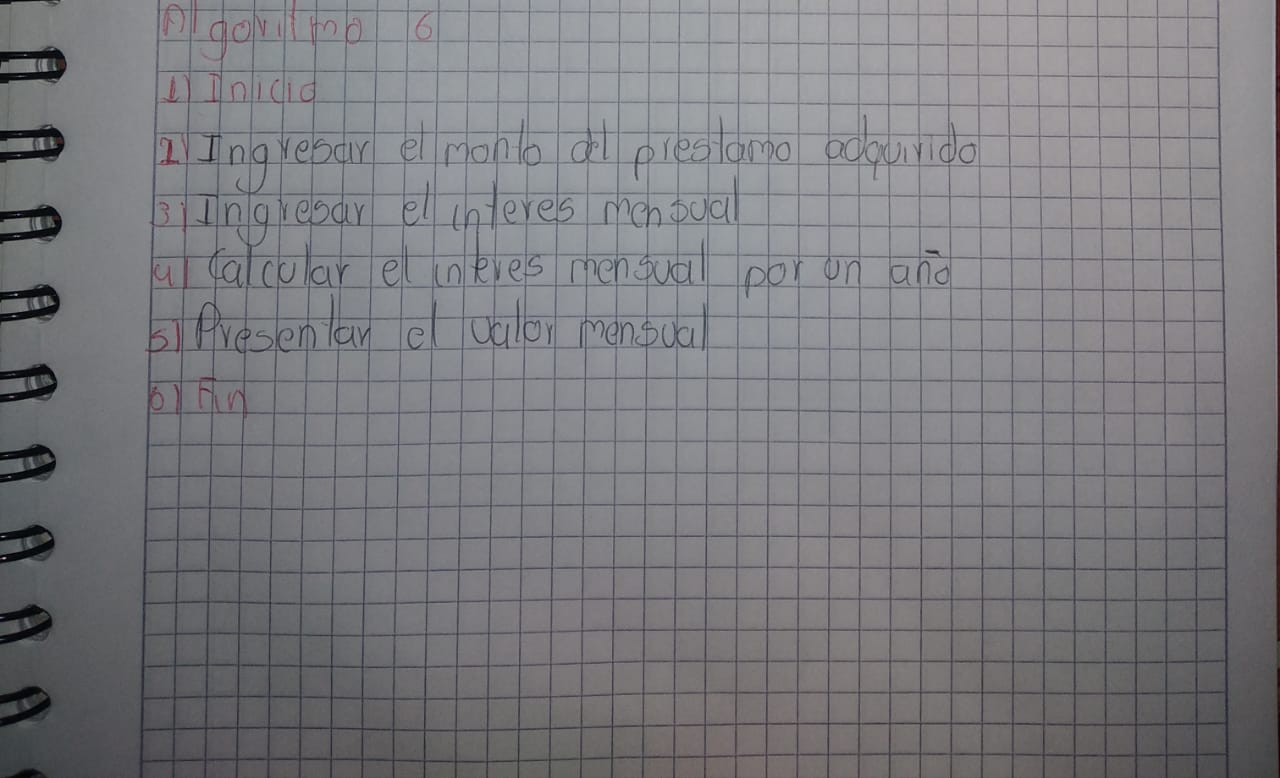 Algoritmo 6
1) Inicio
2) Ingresar el monto del prestamo adquirido
3) Ingresar el interes mensual
4) Calcular el interes mensual por un año
5) Presentar el valor mensual
6) Fin